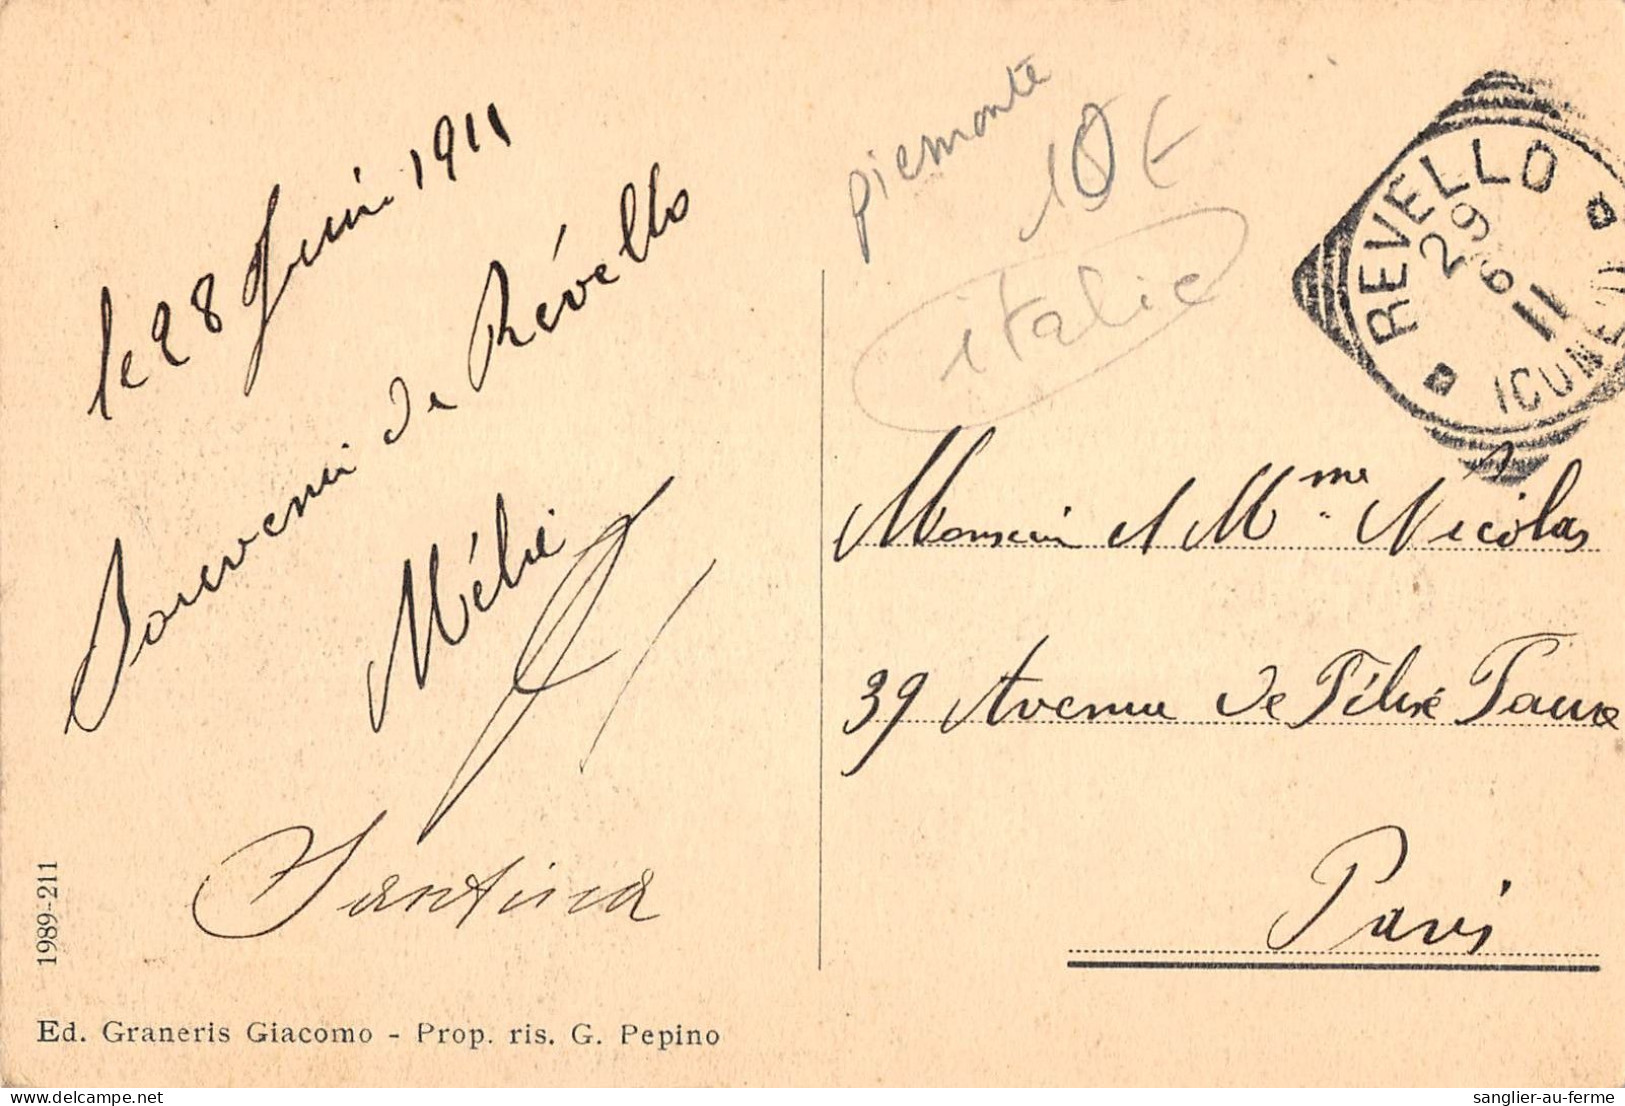 le 28 Juin 1911
Souvenir de Révello
Mélie
Santina
1989-211
Ed. Graneris Giacomo - Prop. ris. G. Pepino
piemonte
10 €
italie
REVELLO
29
6
11
(CUNEO)
Monsieur et Mme Nicolas
39 Avenue de Félixe Faure
Paris
sanglier-au-ferme